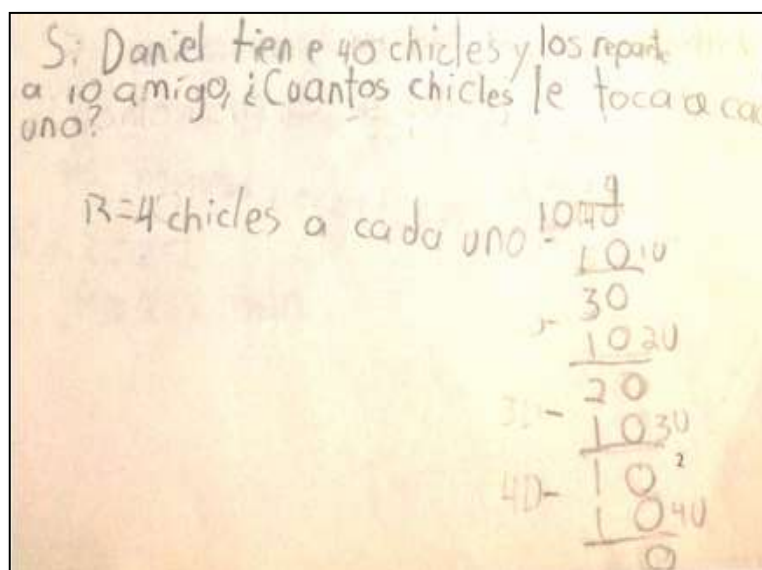 Si Daniel tiene 40 chicles y los reparte
a 10 amigo, ¿Cuantos chicles le toca a cad
uno?
R=4 chicles a cada uno
4
10 40
- 10 1U
30
- 10 2U
20
- 10 3U
10 2
4D- 10 4U
0